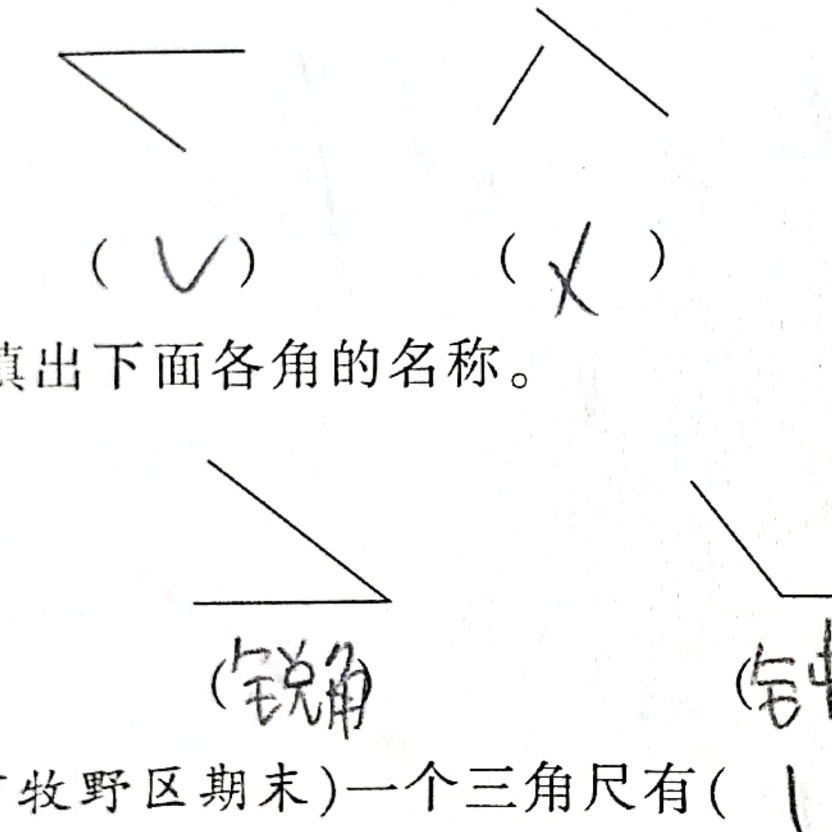 ( √ ) ( × )
填出下面各角的名称。
(锐角) (钝
牧野区期末)一个三角尺有( 1